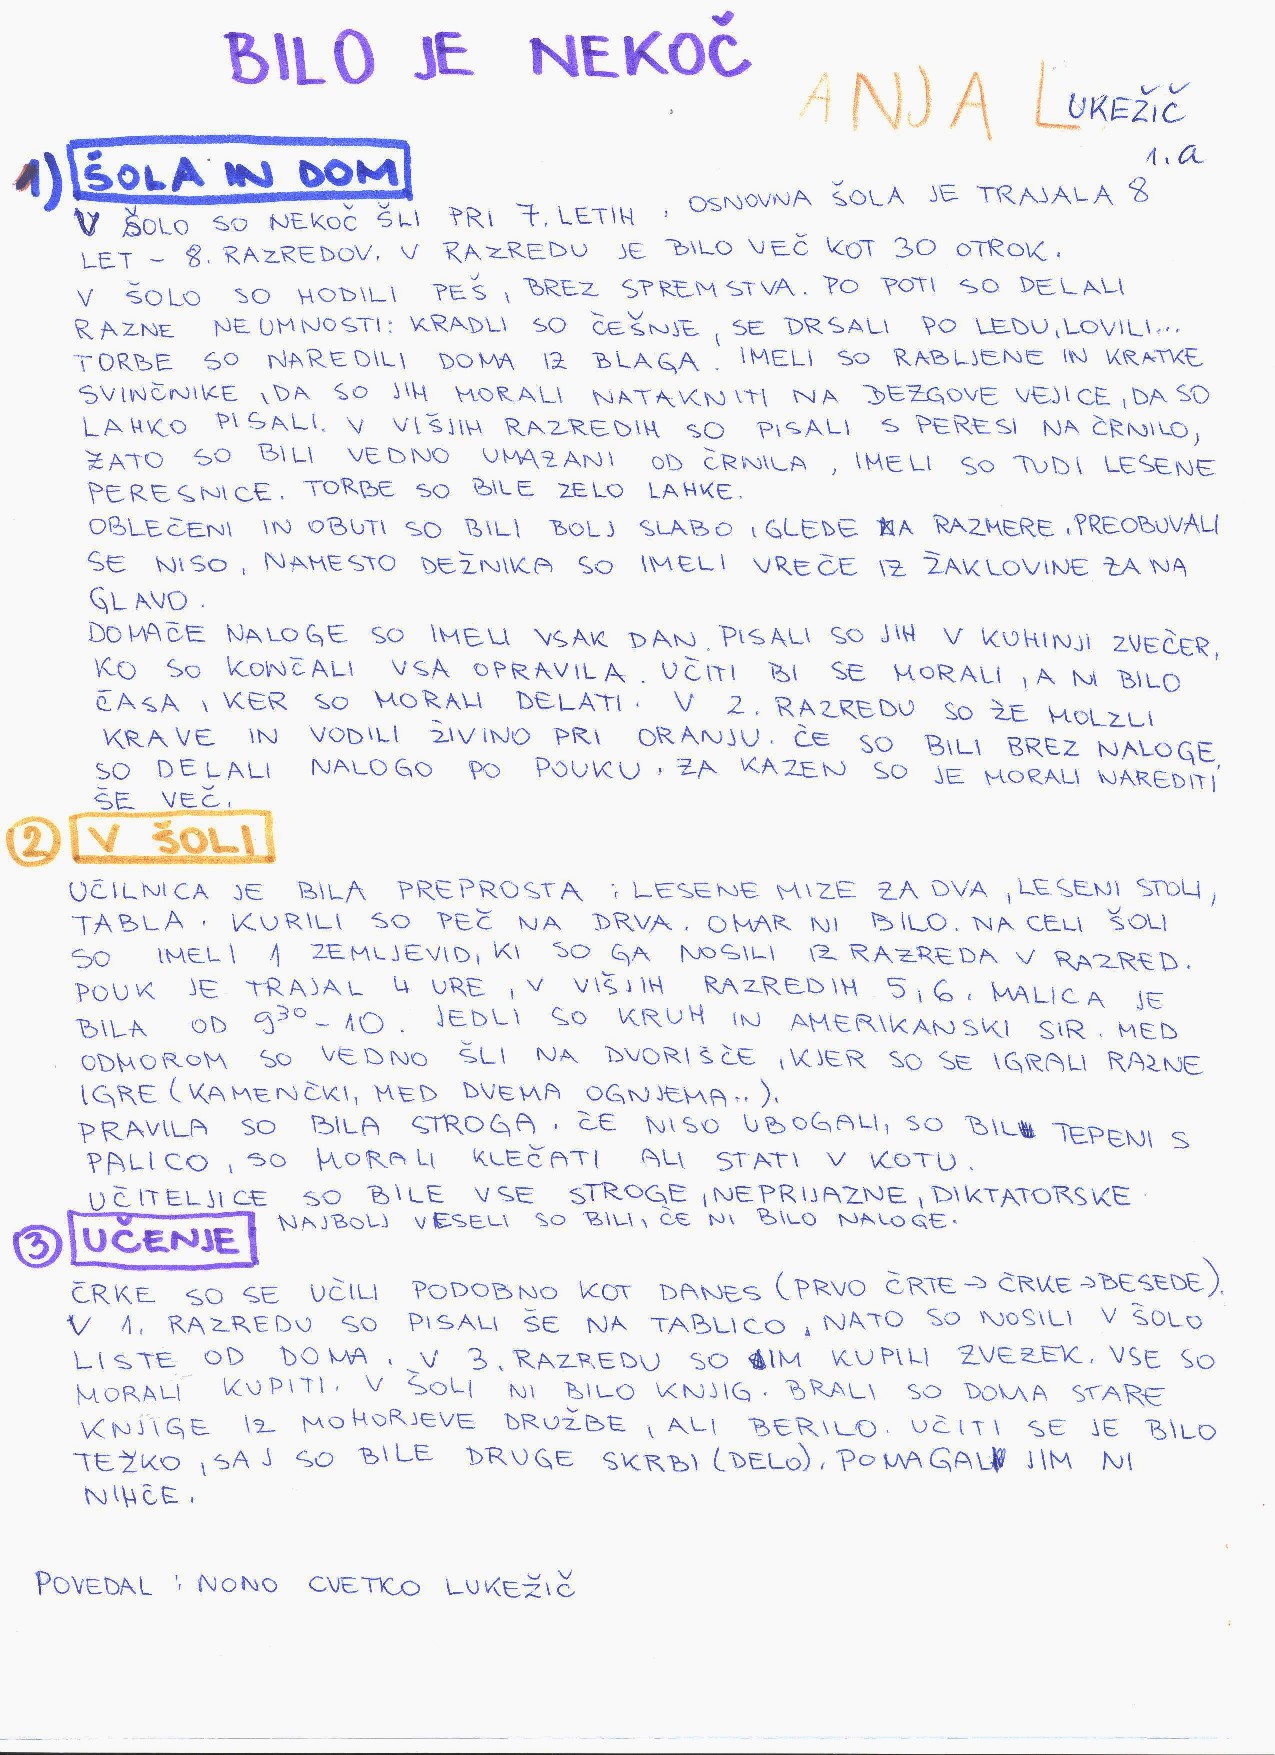 BILO JE NEKOČ
ANJA LUKEŽIČ
1.a
1) ŠOLA IN DOM
V ŠOLO SO NEKOČ ŠLI PRI 7. LETIH. OSNOVNA ŠOLA JE TRAJALA 8
LET - 8. RAZREDOV. V RAZREDU JE BILO VEČ KOT 30 OTROK.
V ŠOLO SO HODILI PEŠ, BREZ SPREMSTVA. PO POTI SO DELALI
RAZNE NEUMNOSTI: KRADLI SO ČEŠNJE, SE DRSALI PO LEDU, LOVILI...
TORBE SO NAREDILI DOMA IZ BLAGA. IMELI SO RABLJENE IN KRATKE
SVINČNIKE, DA SO JIH MORALI NATAKNITI NA BEZGOVE VEJICE, DA SO
LAHKO PISALI. V VIŠJIH RAZREDIH SO PISALI S PERESI NA ČRNILO,
ZATO SO BILI VEDNO UMAZANI OD ČRNILA, IMELI SO TUDI LESENE
PERESNICE. TORBE SO BILE ZELO LAHKE.
OBLEČENI IN OBUTI SO BILI BOLJ SLABO, GLEDE NA RAZMERE. PREOBUVALI
SE NISO, NAMESTO DEŽNIKA SO IMELI VREČE IZ ŽAKLOVINE ZA NA
GLAVO.
DOMAČE NALOGE SO IMELI VSAK DAN. PISALI SO JIH V KUHINJI ZVEČER,
KO SO KONČALI VSA OPRAVILA. UČITI BI SE MORALI, A NI BILO
ČASA, KER SO MORALI DELATI. V 2. RAZREDU SO ŽE MOLZLI
KRAVE IN VODILI ŽIVINO PRI ORANJU. ČE SO BILI BREZ NALOGE,
SO DELALI NALOGO PO POUKU, ZA KAZEN SO JE MORALI NAREDITI
ŠE VEČ.
2 V ŠOLI
UČILNICA JE BILA PREPROSTA: LESENE MIZE ZA DVA, LESENI STOLI,
TABLA. KURILI SO PEČ NA DRVA. OMAR NI BILO. NA CELI ŠOLI
SO IMELI 1 ZEMLJEVID, KI SO GA NOSILI IZ RAZREDA V RAZRED.
POUK JE TRAJAL 4 URE, V VIŠJIH RAZREDIH 5, 6. MALICA JE
BILA OD 9³⁰ - 10. JEDLI SO KRUH IN AMERIKANSKI SIR. MED
ODMOROM SO VEDNO ŠLI NA DVORIŠČE, KJER SO SE IGRALI RAZNE
IGRE (KAMENČKI, MED DVEMA OGNJEMA..).
PRAVILA SO BILA STROGA. ČE NISO UBOGALI, SO BILI TEPENI S
PALICO, SO MORALI KLEČATI ALI STATI V KOTU.
UČITELJICE SO BILE VSE STROGE, NEPRIJAZNE, DIKTATORSKE.
NAJBOLJ VESELI SO BILI, ČE NI BILO NALOGE.
3 UČENJE
ČRKE SO SE UČILI PODOBNO KOT DANES (PRVO ČRTE → ČRKE → BESEDE).
V 1. RAZREDU SO PISALI ŠE NA TABLICO, NATO SO NOSILI V ŠOLO
LISTE OD DOMA. V 3. RAZREDU SO JIM KUPILI ZVEZEK. VSE SO
MORALI KUPITI. V ŠOLI NI BILO KNJIG. BRALI SO DOMA STARE
KNJIGE IZ MOHORJEVE DRUŽBE, ALI BERILO. UČITI SE JE BILO
TEŽKO, SAJ SO BILE DRUGE SKRBI (DELO). POMAGAL JIM NI
NIHČE.
POVEDAL: NONO CVETKO LUKEŽIČ